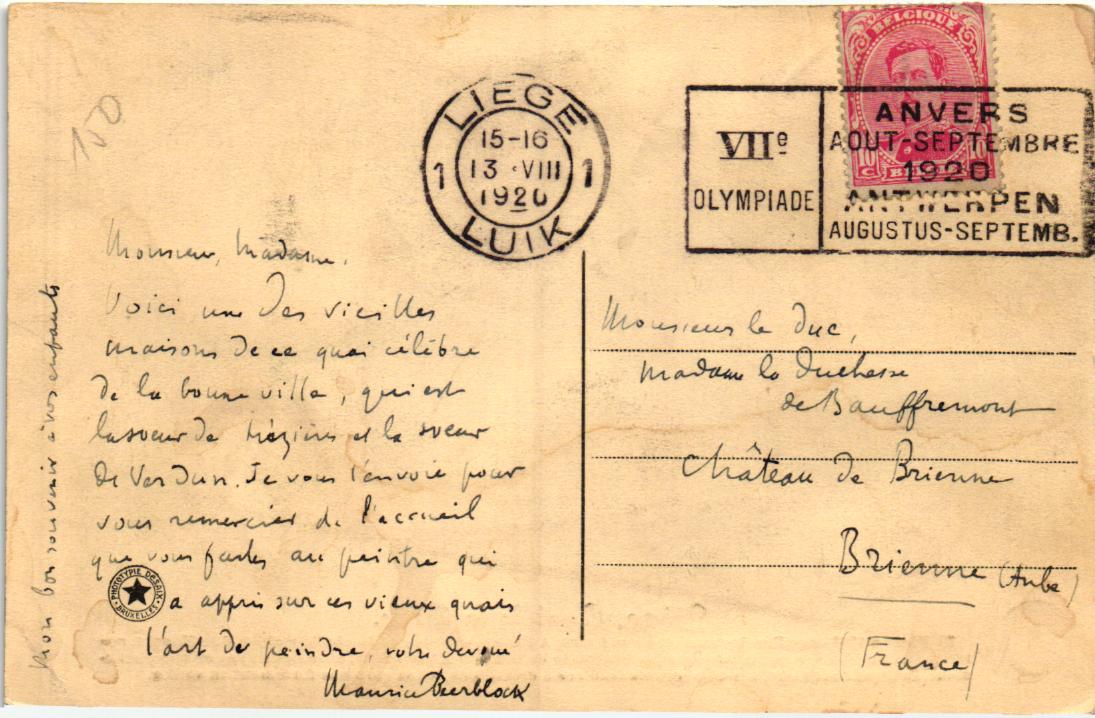 150
LIEGE
1 15-16 1
13 VIII
1920
LUIK
VIIe
OLYMPIADE
ANVERS
AOUT-SEPTEMBRE
1920
ANTWERPEN
AUGUSTUS-SEPTEMB.
BELGIQUE
10
C
Monsieur, Madame,
Voici une des vieilles
maisons de ce quai célèbre
de la bonne ville, qui est
la soeur de Mézières et la soeur
de Verdun. Je vous l'envoie pour
vous remercier de l'accueil
que vous faites au peintre qui
a appris sur ces vieux quais
l'art de peindre, votre dévoué
Maurice Beerblock
Mon bon souvenir à vos enfants
PHOTOTYPIE DESAIX
BRUXELLES
Monsieur le Duc,
Madame la Duchesse
de Bauffremont
Château de Brienne
Brienne (Aube)
(France)